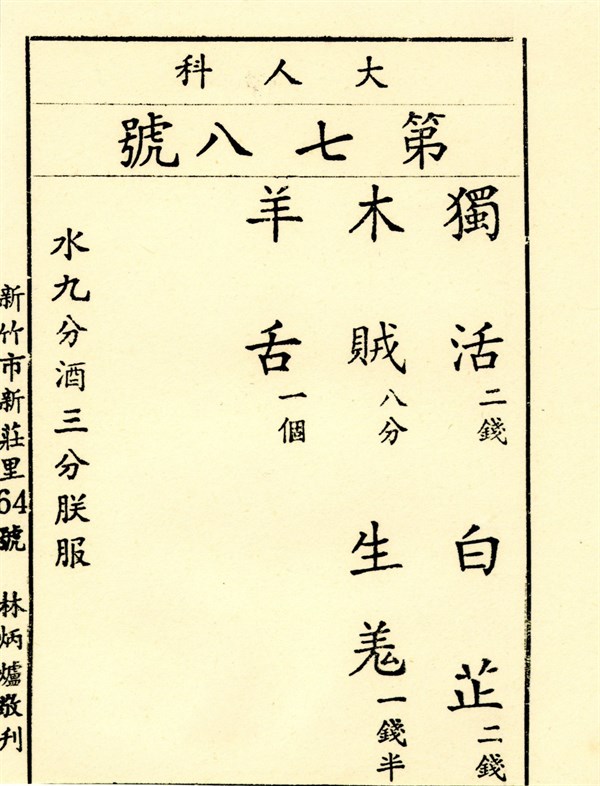 大人科
第七八號
獨活二錢 白芷二錢
木賊八分 生羗一錢半
羊舌一個
水九分酒三分朕服
新竹市新莊里64號 林炳爐敬刊